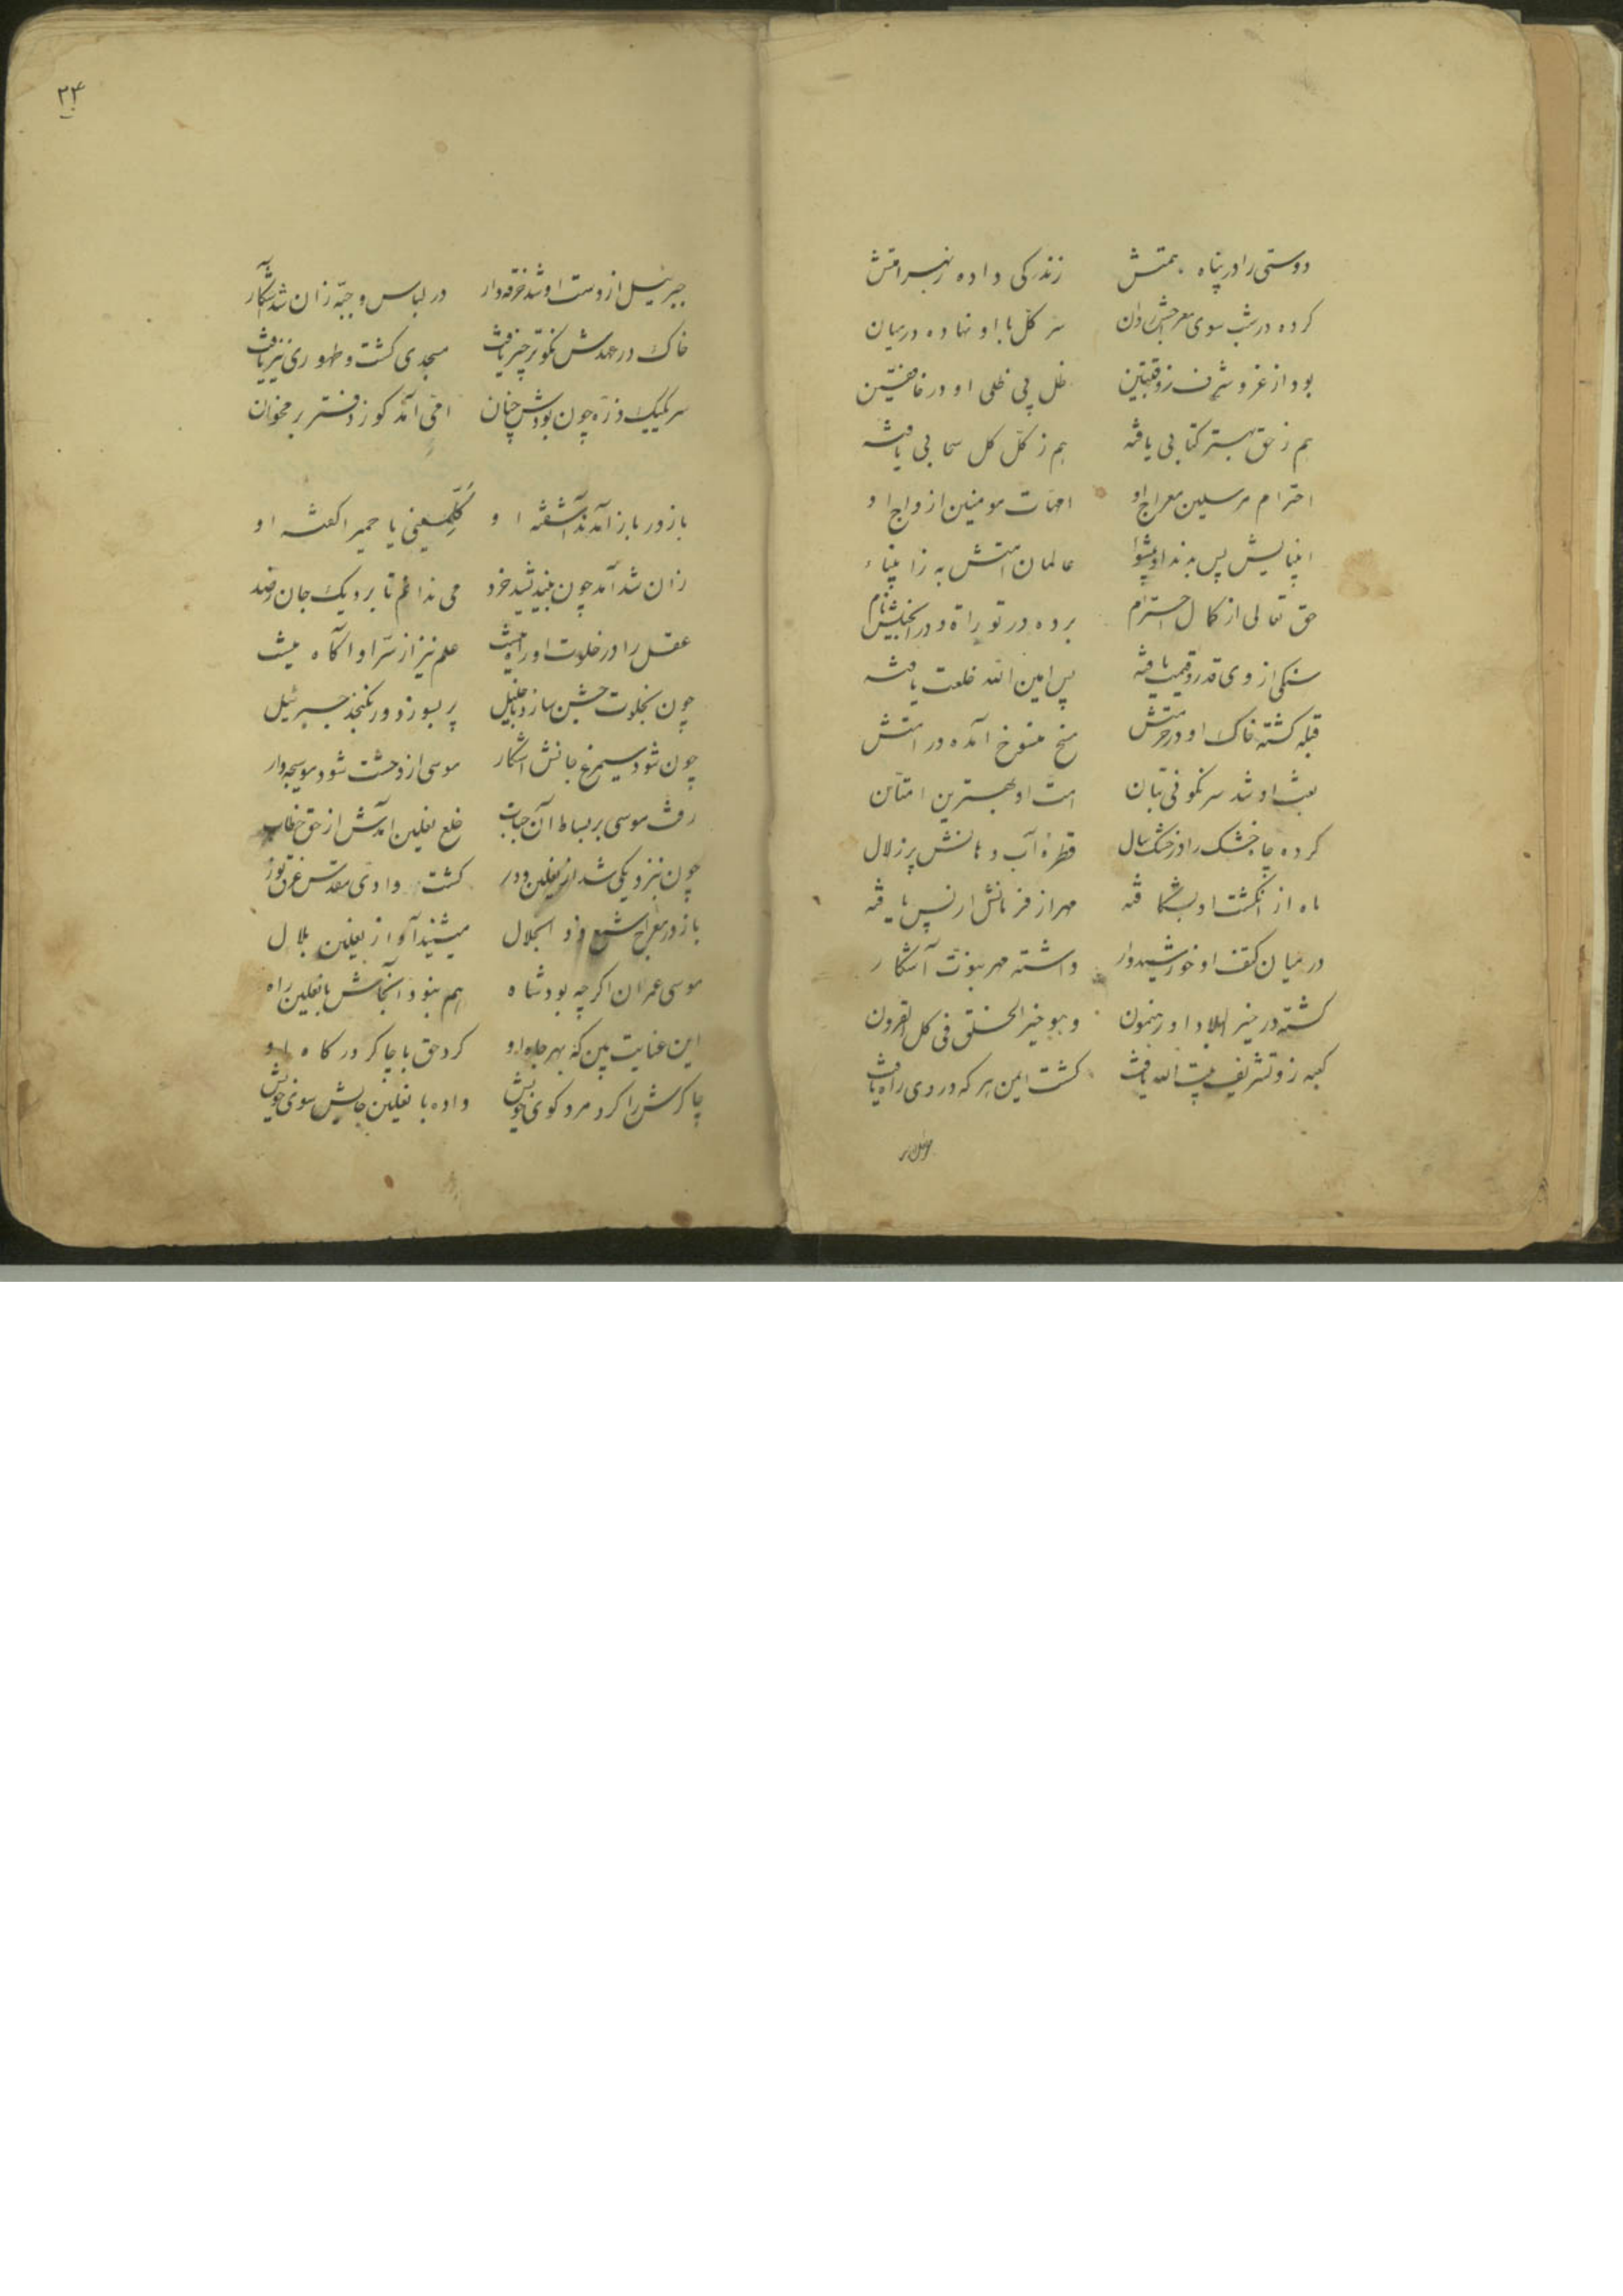 دوستی را در پناه همتش زندگی داده ز بهر امتش
کرده در شب سوی معراجش روان سر کل با او نهاده در میان
بود از عز و شرف ذو قبلتین ظل بی ظلی او در خافقین
هم ز حق بهتر کتابی یافته هم ز کل کل حسابی یافته
احترام مرسلین معراج او امهات مومنین ازواج او
انبیا پس بدند او پیشوا عالمان امتش به ز انبیاء
حق تعالی از کمال احترام برده در توراة و در انجیلش نام
سنکی از وی قدر و قیمت یافته پس امین الله خلعت یافته
قبله کشته خاک او در حرمتش مسخ منسوخ آمده در امتش
بعث او شد سرنکونی بتان امت او بهترین امتان
کرده چاه خشک را در خشک سال قطرۀ آب دهانش پر زلال
ماه از انکشت او بشکافته مهر از فرمانش از پس تافته
در میان کتف او خورشیدوار داشته مهر نبوت آشکار
کشته در خیر البلاد او رهنمون و هو خیر الخلق فی کل القرون
کعبه زو تشریف بیت الله یافت کشت ایمن هر که در وی راه یافت
۲۴
جبرئیل از دست او شد خرقه دار در لباس وحیه زان شد آشکار
خاک در عهدش نکوتر چیز یافت مسجدی کشت و طهوری نیز یافت
سر یکیک ذره چون بودش عیان امی آمد کو ز دفتر بر مخوان
باز در باز آمدند آشفته او کلمینی یا حمیرا کفته او
زان شد آمد چون بیندیشد خرد می ندانم تا برد یک جان ز صد
عقل را در خلوت او راه نیست علم نیز از سر او آکاه نیست
چون بخلوت جشن سازد با خلیل پر بسوزد در نکنجد جبرئیل
چون شود سیمرغ جانش آشکار موسی از وحشت شود موسیجه وار
رفت موسی بر بساط آن جناب خلع نعلین آمدش از حق خطاب
چون بنزدیکی شد از نعلین دور کشت در وادی مقدس غرق نور
باز در معراج شمع ذو الجلال میشنید آواز نعلین بلال
موسی عمران اکرچه بود شاه هم نبود آنجاش با نعلین راه
این عنایت بین که بهر جاه او کرد حق با چاکر درکاه او
چاکرش را کرد مرد کوی خویش داده با نعلین جایش سوی خویش